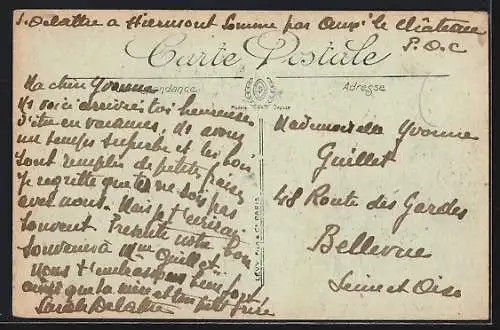 S. Delattre à Hiermont Somme par Auxi le Château
P. D. C
Carte Postale
Correspondance
Adresse
Ma chère Yvonne
Me voici arrivée très heureuse
d'être en vacances, ns avons
un temps superbe et les bois
sont remplis de petites fraises
Je regrette que tu ne sois pas
avec nous. Mais je t'écrirai
souvent. Présente notre bon
souvenir à Mme Guillet
Nous t'embrassons bien fort
ainsi que ta mère et ton petit frère
Sarah Delattre
Mademoiselle Yvonne
Guillet
48 Route des Gardes
Bellevue
Seine et Oise
LEVY FILS & Cie PARIS